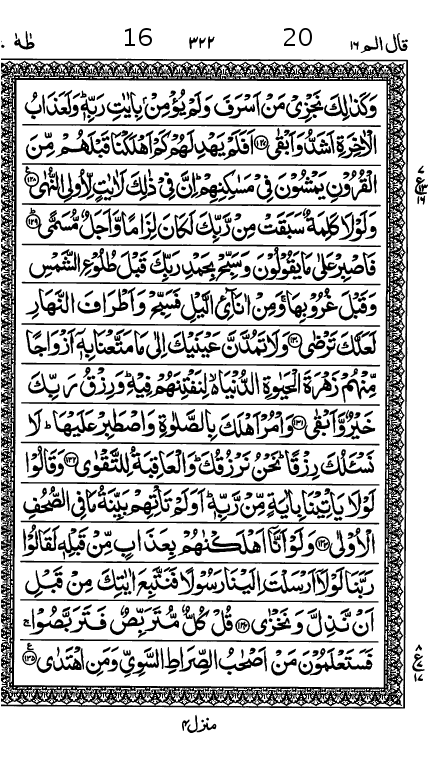 قال الم ١٦ 20 ٣٢٢ 16 طٰهٰ ٢٠
وَكَذٰلِكَ نَجْزِیْ مَنْ اَسْرَفَ وَلَمْ يُؤْمِنْۢ بِاٰيٰتِ رَبِّهٖ ؕ وَلَعَذَابُ
الْاٰخِرَةِ اَشَدُّ وَاَبْقٰی ﴿۱۲۷﴾ اَفَلَمْ يَهْدِ لَهُمْ كَمْ اَهْلَكْنَا قَبْلَهُمْ مِّنَ
الْقُرُوْنِ يَمْشُوْنَ فِیْ مَسٰكِنِهِمْ ؕ اِنَّ فِیْ ذٰلِكَ لَاٰيٰتٍ لِّاُولِی النُّهٰی ﴿۱۲۸﴾ ع
٧ ع ١٦
وَلَوْلَا كَلِمَةٌ سَبَقَتْ مِنْ رَّبِّكَ لَكَانَ لِزَامًا وَّاَجَلٌ مُّسَمًّی ﴿۱۲۹﴾ ؕ
فَاصْبِرْ عَلٰی مَا يَقُوْلُوْنَ وَسَبِّحْ بِحَمْدِ رَبِّكَ قَبْلَ طُلُوْعِ الشَّمْسِ
وَقَبْلَ غُرُوْبِهَا ۚ وَمِنْ اٰنَآئِ الَّيْلِ فَسَبِّحْ وَاَطْرَافَ النَّهَارِ
لَعَلَّكَ تَرْضٰی ﴿۱۳۰﴾ وَلَا تَمُدَّنَّ عَيْنَيْكَ اِلٰی مَا مَتَّعْنَا بِهٖۤ اَزْوَاجًا
مِّنْهُمْ زَهْرَةَ الْحَيٰوةِ الدُّنْيَا ۙ۬ لِنَفْتِنَهُمْ فِيْهِ ؕ وَرِزْقُ رَبِّكَ
خَيْرٌ وَّاَبْقٰی ﴿۱۳۱﴾ وَاْمُرْ اَهْلَكَ بِالصَّلٰوةِ وَاصْطَبِرْ عَلَيْهَا ؕ لَا
نَسْـَٔلُكَ رِزْقًا ؕ نَحْنُ نَرْزُقُكَ ؕ وَالْعَاقِبَةُ لِلتَّقْوٰی ﴿۱۳۲﴾ وَقَالُوْا
لَوْلَا يَاْتِيْنَا بِاٰيَةٍ مِّنْ رَّبِّهٖ ؕ اَوَلَمْ تَاْتِهِمْ بَيِّنَةُ مَا فِی الصُّحُفِ
الْاُوْلٰی ﴿۱۳۳﴾ وَلَوْ اَنَّاۤ اَهْلَكْنٰهُمْ بِعَذَابٍ مِّنْ قَبْلِهٖ لَقَالُوْا
رَبَّنَا لَوْلَاۤ اَرْسَلْتَ اِلَيْنَا رَسُوْلًا فَنَتَّبِعَ اٰيٰتِكَ مِنْ قَبْلِ
اَنْ نَّذِلَّ وَنَخْزٰی ﴿۱۳۴﴾ قُلْ كُلٌّ مُّتَرَبِّصٌ فَتَرَبَّصُوْا ۚ
فَسَتَعْلَمُوْنَ مَنْ اَصْحٰبُ الصِّرَاطِ السَّوِیِّ وَمَنِ اهْتَدٰی ﴿۱۳۵﴾ ع
٨ ع ١٧
منزل ۴